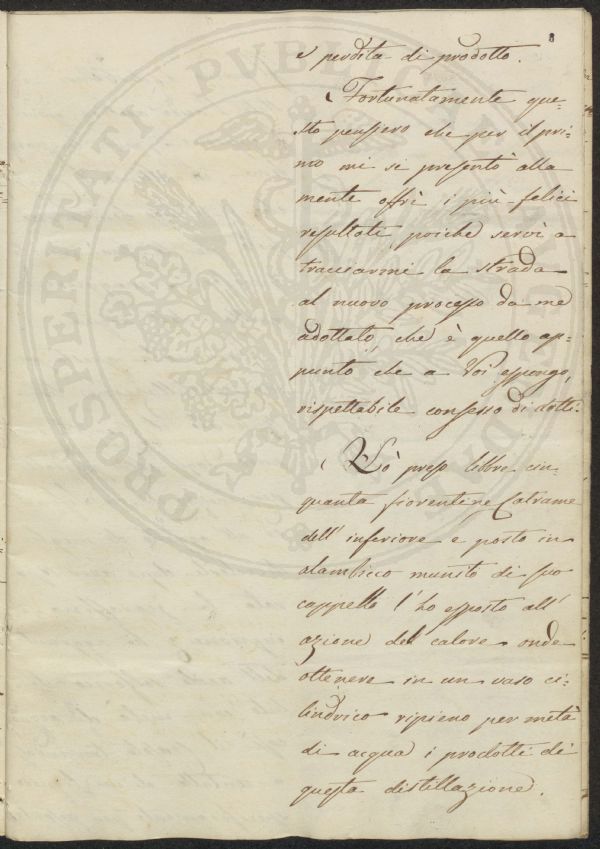 8
e perdita di prodotto.
Fortunatamente que-
sto pensiero che per il pri-
mo mi si presentò alla
mente offrì i più felici
resultati, poiché servì a
tracciarmi la strada
al nuovo processo da me
adottato, che è quello ap-
punto che a Voi espongo,
rispettabile consesso di dotti.
Hò preso libbre cin-
quanta fiorentine Catrame
dell' inferiore e posto in
alambicco munito di suo
cappello l' ho esposto all'
azione del calore onde
ottenere in un vaso ci-
lindrico ripieno per metà
di acqua i prodotti di
questa distillazione.
PROSPERITATI PUBLICAE AUGENDAE